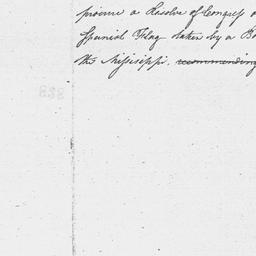 procure a Resolve of Congress o
Spanish Flag taken by a Bo
the Missisippi. recommending